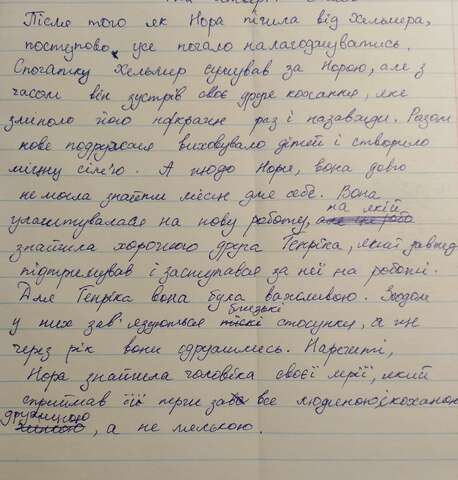 Після того як Нора пішла від Хельмера,
поступово усе почало налагоджуватись.
Спочатку Хельмер сумував за Норою, але з
часом він зустрів своє друге кохання, яке
змінило його на краще раз і назавжди. Разом
нове подружжя виховувало дітей і створило
міцну сім'ю. А щодо Нори, вона довго
не могла знайти місця для себе. Вона
улаштувалася на нову роботу, на якій
знайшла хорошого друга Генріка, який завжди
підтримував і заступався за неї на роботі.
Для Генріка вона була важливою. Згодом
у них зав'язуються близькі стосунки, а
через рік вони одружились. Нарешті,
Нора знайшла чоловіка своєї мрії, який
сприймав її перш за все людиною, і коханою
дружиною, а не лялькою.